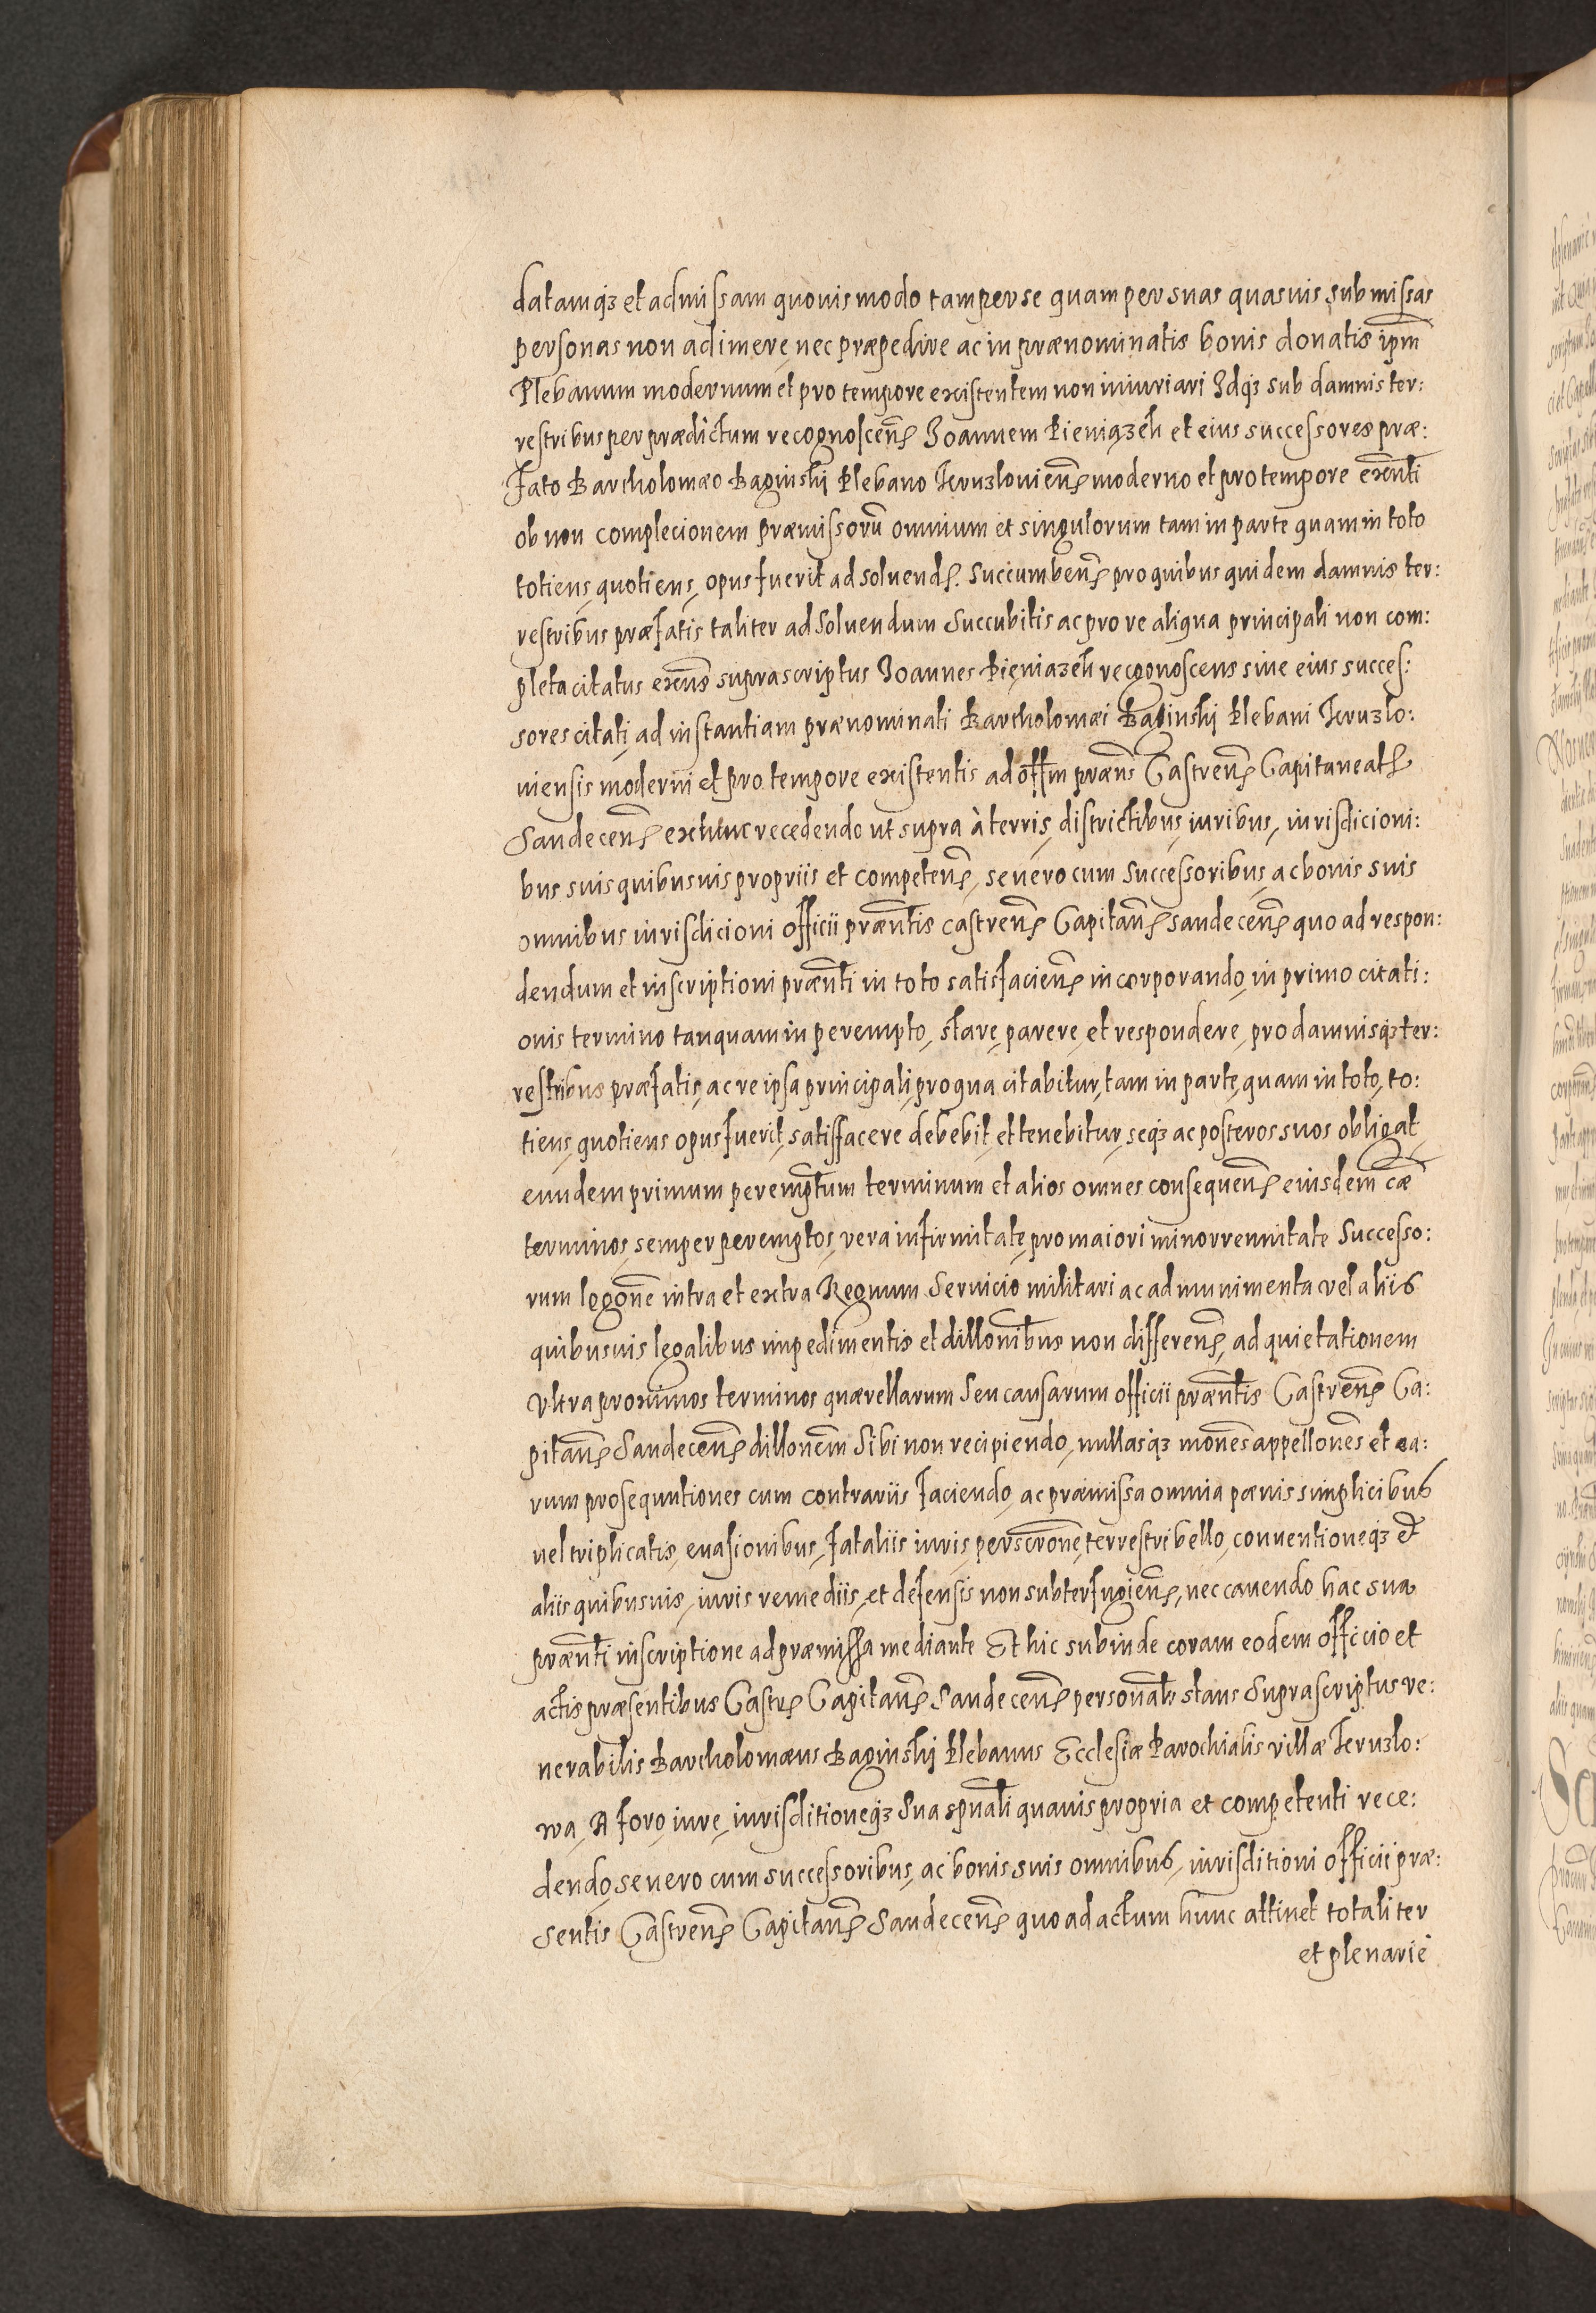 datamq₃ et admissam quovismodo tam per se quam per suas quasvis submissas
personas non adimere, nec præpedire ac in prænominatis bonis donatis ipm̄
Plebanum modernum et pro tempore existentem non iniuriari Idq₃ sub damnis ter:
restribus per prædictum recognoscen̄ Ioannem Pieniązek et eius successores præ:
fato Bartholomæo Baginski Plebano Jeruzlovien̄ moderno et pro tempore exēnti
ob non complecionem præmissorū omnium et singulorum tam in parte quam in toto
totiens, quotiens, opus fuerit ad solvend. Succumben̄ pro quibus quidem damnis ter:
restribus præfatis taliter ad solvendum Succubitis ac pro re aliqua principali non com:
pleta citatus exēns suprascriptus Ioannes Pieniazek recognoscens sive eius succes:
sores citati, ad instantiam prænominati Bartholomæi Baginski Plebani Jeruzlo:
viensis moderni et pro tempore existentis ad offm̄ præn̄s Castren̄ Capitaneat
Sandecen̄ ex hinc recedendo ut supra à terris, districtibus, iuribus, iurisdicioni:
bus suis quibusvis propriis et competen̄, se vero cum Successoribus, ac bonis suis
omnibus iurisdicioni officii prænt̄is castren̄ Capitan̄ sandecen̄ quo ad respon:
dendum et inscriptioni prænt̄i in toto satisfacien̄ incorporando, in primo citati:
onis termino tanquam in perempto, stare, parere, et respondere, pro damnisq₃ ter:
restribus præfatis, ac re ipsa principali, pro qua citabitur, tam in parte, quam in toto, to:
tiens, quotiens opus fuerit, satisfacere debebit, et tenebitur, seq₃ ac posteros suos obligat,
eundem primum peremptum terminum et alios omnes consequen̄ eiusdem cǣ
terminos, semper peremptos, vera infirmitate, pro maiori minorrennitate Successo:
rum legōne intra et extra Regnum Servicio militari ac ad munimenta vel aliis
quibusvis legalibus impedimentis et dillonībus non differen̄, ad quietationem
Ultra proximos terminos quærellarum Seu causarum officii prænt̄is Castren̄ Ca:
pitan̄ Sandecen̄ dillonēm Sibi non recipiendo, nullasq₃ monēs appellonēs et ea:
rum prosequutiones cum contrariis faciendo, ac præmissa omnia pænis simplicibus
vel triplicatis, evasionibus, fataliis iuris, perscrōne, terrestri bello, conventioneq₃ et
aliis quibusvis, iuris remediis, et defensis non subterfugien̄, nec cavendo hac sua
prænt̄i inscriptione ad præmissa mediante Et hic subinde coram eodem officio et
actis præsentibus Castr Capitan̄ Sandecen̄ personalr̄ stans Suprascriptus ve:
nerabilis Bartholomæus Baginski Plebanus Ecclesiæ Parochialis villæ Jeruzlo:
wa, A foro, iure, iurisditioneq₃ Sua spūali quavis propria et competenti rece:
dendo, se vero cum successoribus, ac bonis suis omnibus, iurisditioni officii præ:
sentis Castren̄ Capitan̄ Sandecen̄ quo ad actum hunc attinet totaliter
et plenarie